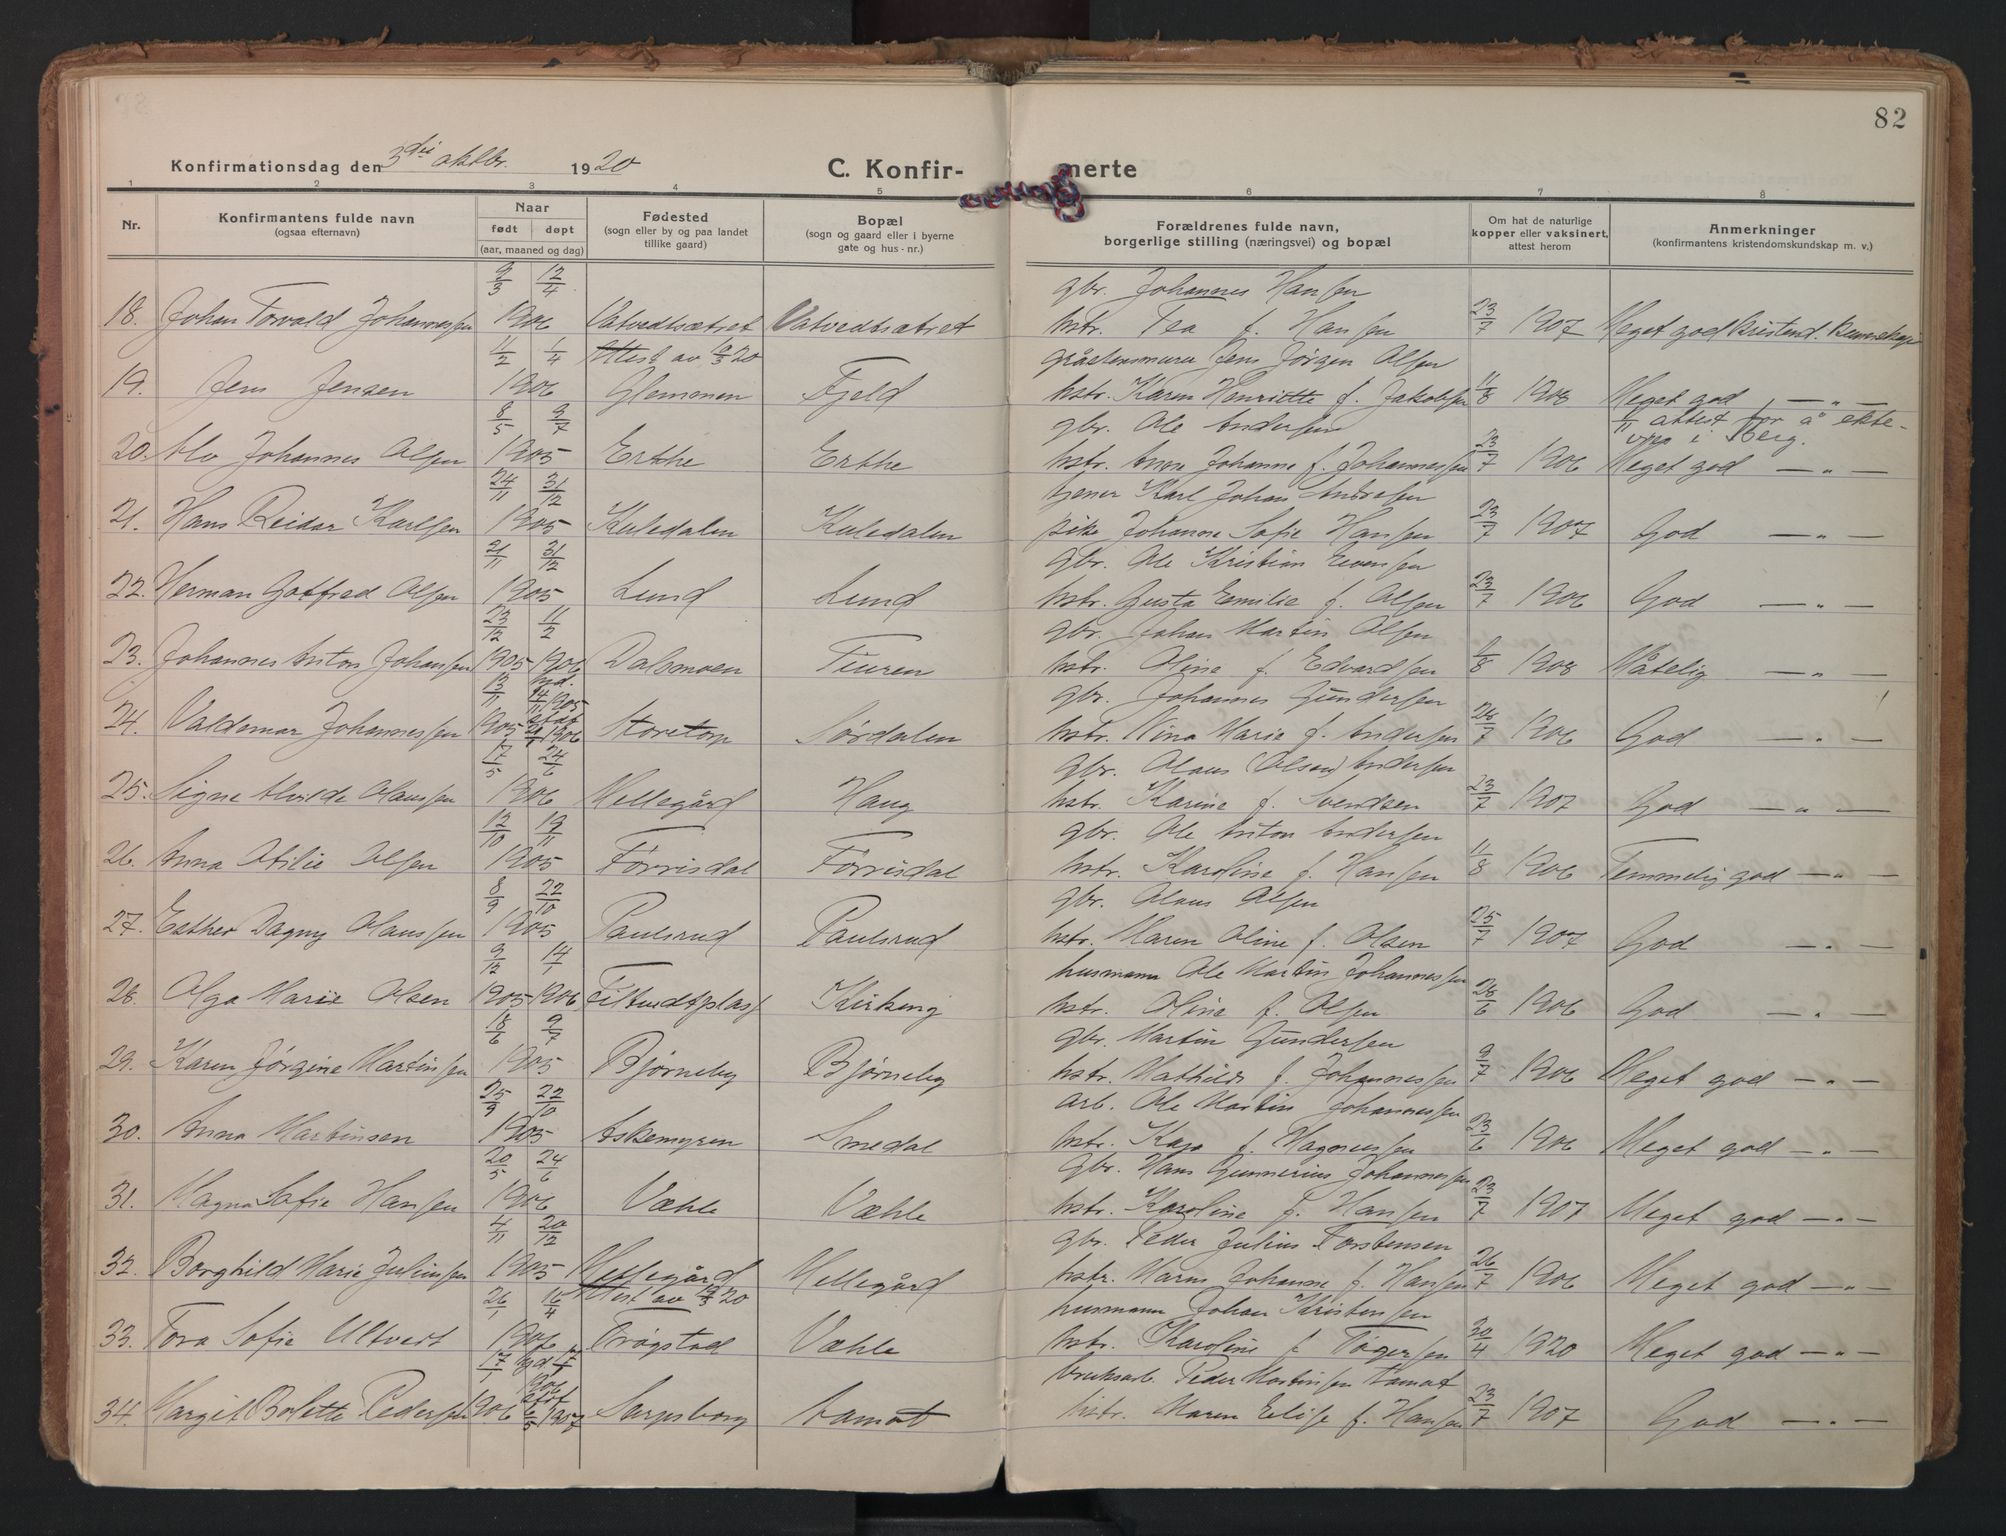 82
Konfirmationsdag den 3die oktbr. 1920 C. Konfir- merte
1 2 3 4 5 6 7 8
Nr. Konfirmantens fulde navn (ogsaa efternavn) Naar født døpt (aar, maaned og dag) Fødested (sogn eller by og paa landet tillike gaard) Bopæl (sogn og gaard eller i byerne gate og hus-nr.) Forældrenes fulde navn, borgerlige stilling (næringsvei) og bopæl Om hat de naturlige kopper eller vaksinert, attest herom Anmerkninger (konfirmantens kristendomskundskap m. v.)
9/3 12/4 gbr. Johannes Hansen
18. Johan Torvald Johannessen 1906 Vatvedtsætret Vatvedtsætret hstr. Tea f. Hansen 23/7 1907 Meget god Kristend. Kunnskap
11/2 1/4 Attest av 19/3 20 gråstensmurer Jens Jørgen Olsen
19. Jens Jensen 1906 Glemmen Fjeld hstr. Karen Henriette f. Jakobsen 11/8 1908 Meget god — „ —
8/5 9/7 gbr. Ole Andersen attest for å ekte-
vies i Berg.
20. Alv Johannes Olsen 1905 Erthe Erthe hstr. Anne Johanne f. Johannessen 23/7 1906 Meget god — „ —
24/11 31/12 tjener Karl Johan Andresen
21. Hans Reidar Karlsen 1905 Kuledalen Kuledalen pike Johanne Sofie Hansen 23/7 1907 God — „ —
21/11 31/12 gbr. Ole Kristian Evensen
22. Herman Gotfred Olsen 1905 Lund Lund hstr. Gusta Emilie f. Olsen 23/7 1906 God — „ —
23/12 11/2 gbr. Johan Martin Olsen
23. Johannes Anton Johansen 1905 1906 Dalsmoen Furen hstr. Oline f. Edvardsen 1/8 1908 Måtelig — „ —
13/11 hjd. 14/11 1905 gbr. Johannes Gundersen
24. Valdemar Johannessen 1905 stad 1906 Storetop Sørdalen hstr. Nina Marie f. Andersen 26/7 1906 God — „ —
17/5 24/6 gbr. Olaus (Olsen) Andersen
25. Signe Alvilde Olaussen 1906 Mellegård Haug hstr. Karine f. Svendsen 23/7 1907 God — „ —
12/10 19/11 gbr. Ole Anton Andersen
26. Anna Otilie Olsen 1905 Førrisdal Førrisdal hstr. Karoline f. Hansen 11/8 1906 Temmelig god — „ —
8/9 22/10 gbr. Olaus Olsen
27. Esther Dagny Olaussen 1905 Paulsrud Paulsrud hstr. Maren Oline f. Olsen 25/7 1907 God — „ —
9/12 14/1 husmann Ole Martin Johannessen
28. Olga Marie Olsen 1905 1906 Kirkeng hstr. Oline f. Olsen 28/6 1906 God — „ —
18/6 9/7 gbr. Martin Gundersen
29. Karen Jørgine Martinsen 1905 Bjørneby Bjørneby hstr. Mathilde f. Johannessen 9/7 1906 Meget god — „ —
25/9 22/10 arb. Ole Martin Johannessen
30. Anna Martinsen 1905 Askemyren Smedal hstr. Kaja f. Magnussen 23/6 1906 Meget god — „ —
20/5 24/6 gbr. Hans Gunnerius Johannessen
31. Magna Sofie Hansen 1906 Væhle Væhle hstr. Karoline f. Hansen 23/7 1907 Meget god — „ —
4/11 20/12 gbr. Peder Julius Torstensen
32. Borghild Marie Juliussen 1905 Mellegård Mellegård hstr. Maren Johanne f. Hansen 26/7 1906 Meget god — „ —
26/1 16/4 Attest av 19/3 20 husmann Johan Kristensen
33. Tora Sofie Ultvedt 1906 Trøgstad Væhle hstr. Karoline f. Tøgersen 30/4 1920 Meget god — „ —
17/1 hjd 17/1 1906 bruksarb. Peder Martinsen Aamot
34. Margit Bolette Pedersen 1906 stad 6/5 1907 Sarpsborg Aamot hstr. Maren Elise f. Hansen 23/7 1907 God — „ —